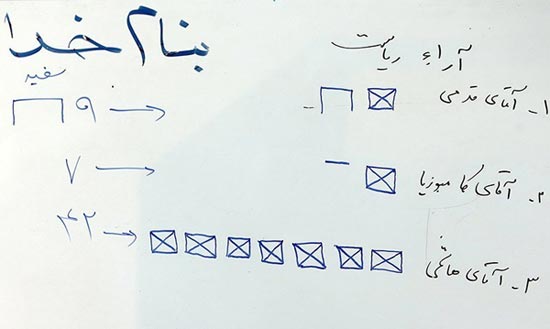 بنام خدا
آراءِ ریاست
سفید
۱- آقای قدمی ۹
۲- آقای کامبوزیا ۷
۳- آقای هاشمی ۴۲